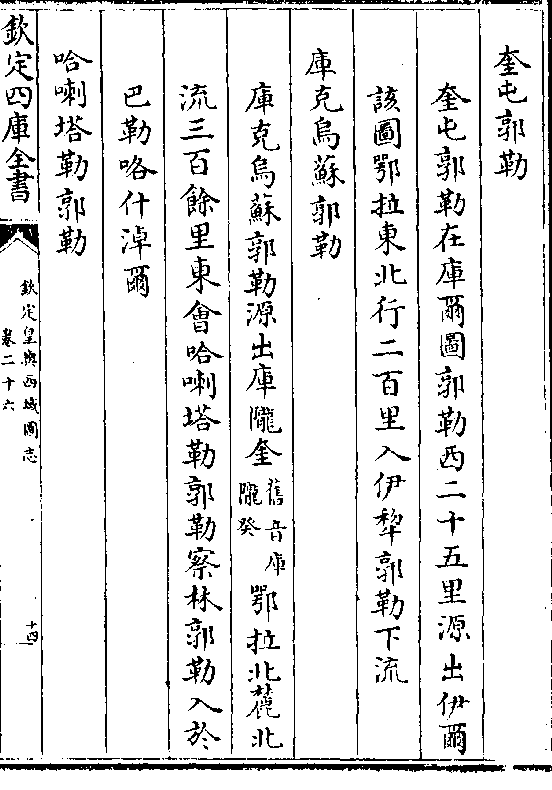 奎屯郭勒
奎屯郭勒在庫爾圖郭勒西二十五里源出伊爾
該圖鄂拉東北行二百里入伊犂郭勒下流
庫克烏蘇郭勒
庫克烏蘇郭勒源出庫隴奎舊音庫隴癸鄂拉北麓北
流三百餘里東會哈喇塔勒郭勒察林郭勒入於
巴勒喀什淖爾
哈喇塔勒郭勒
欽定四庫全書
欽定皇輿西域圖志
卷二十六
十四